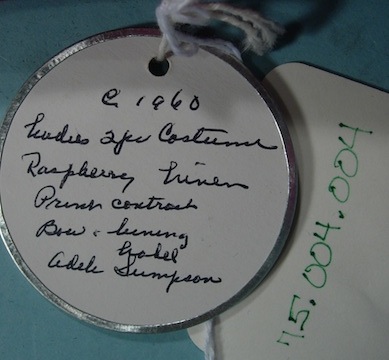 C 1960
Ladies 2pc Costume
Raspberry Linen
Print contrast
Bow & lining
Label
Adele Simpson
75.004.004